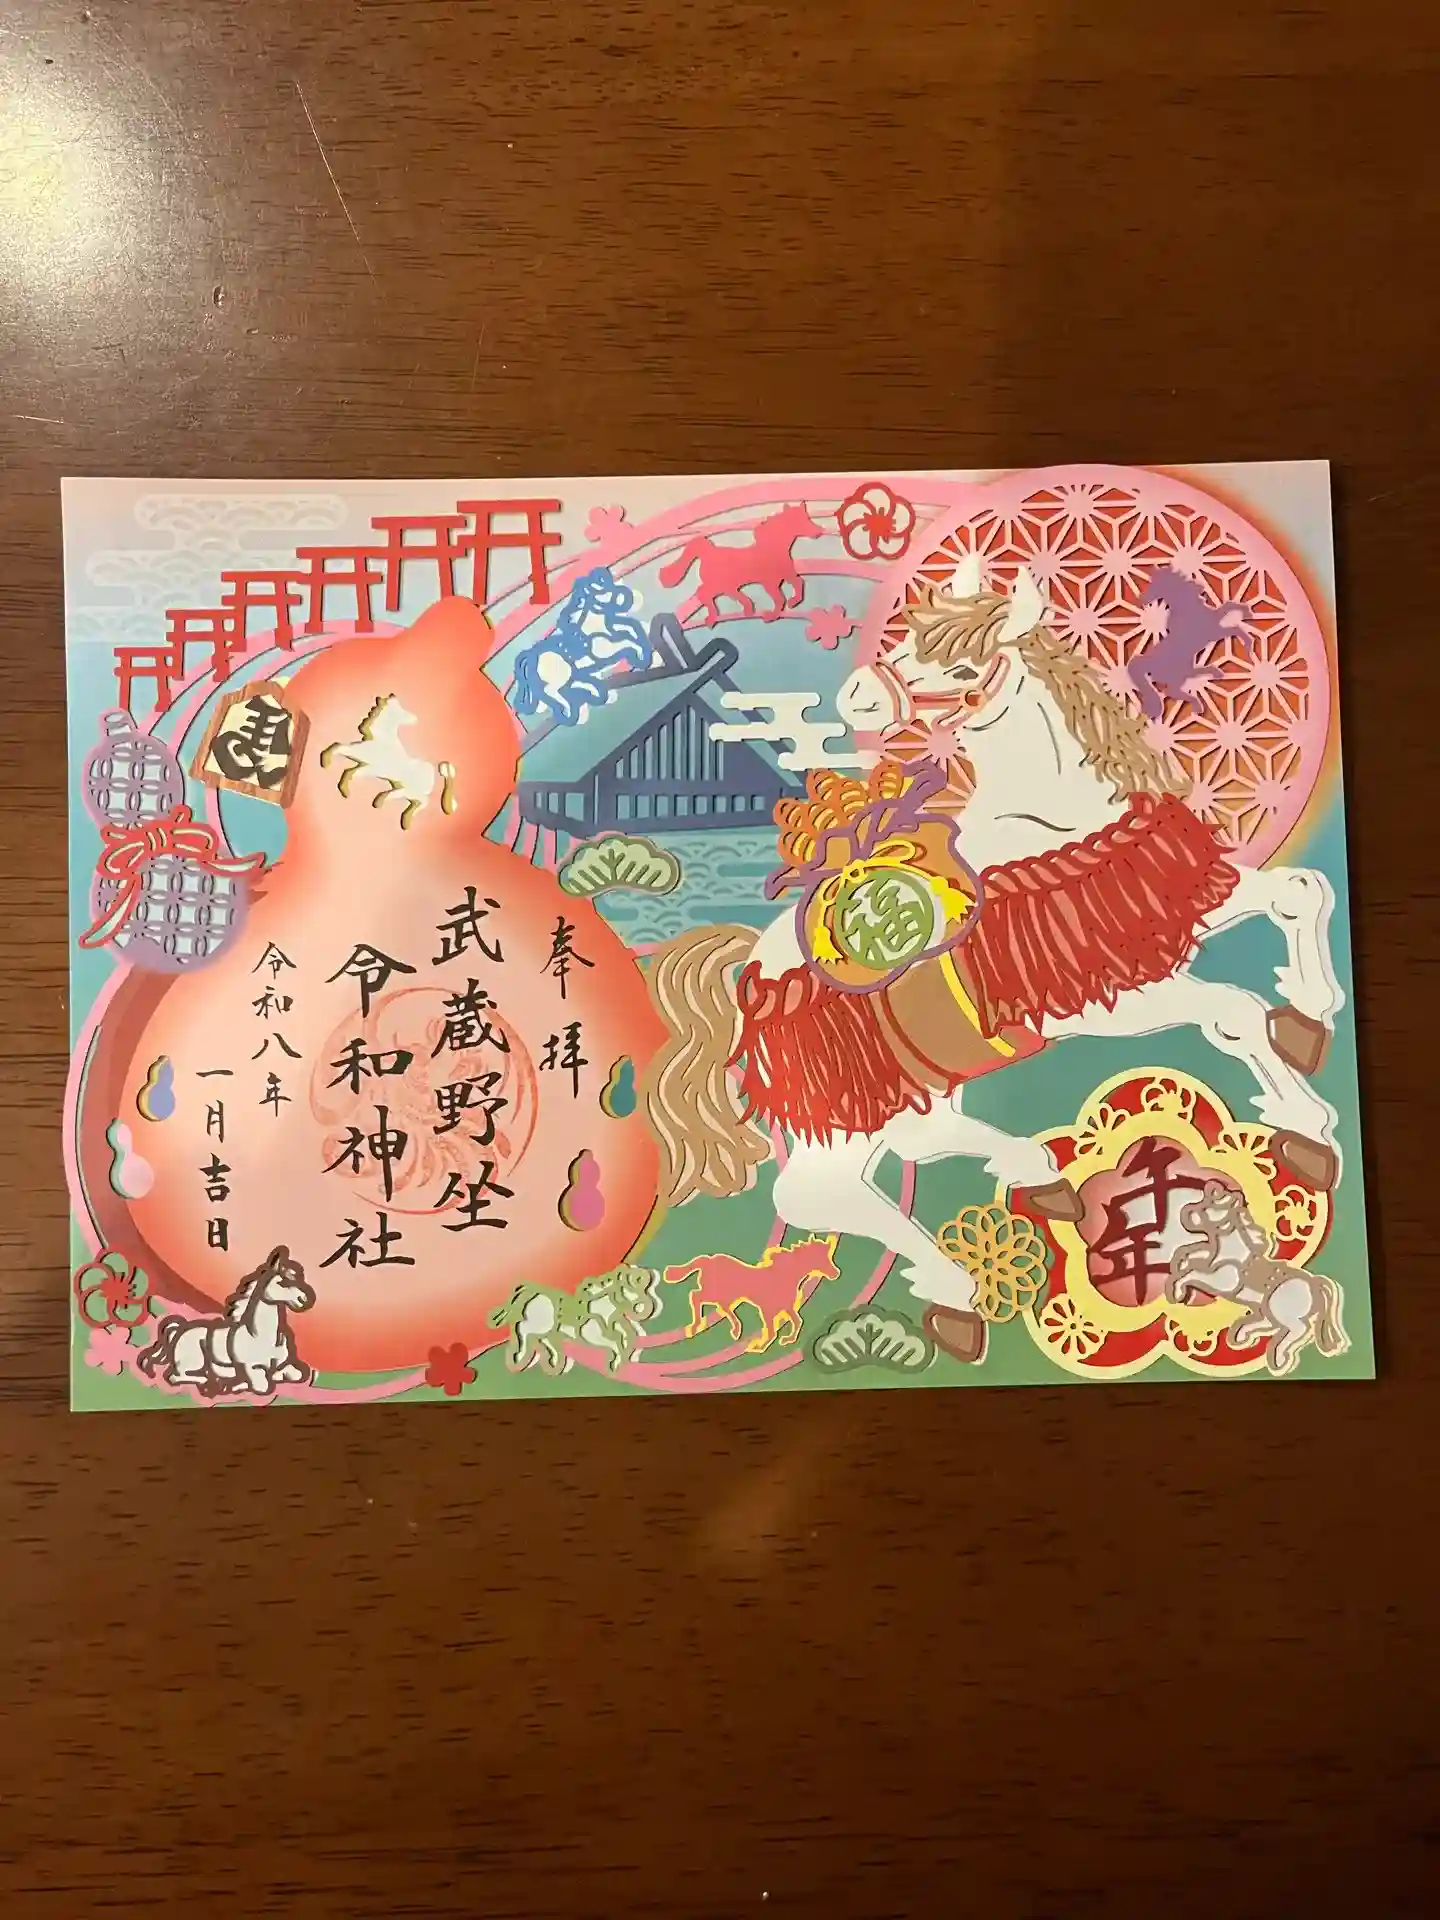 奉拝
武蔵野坐
令和神社
令和八年
一月吉日
馬
福
午年